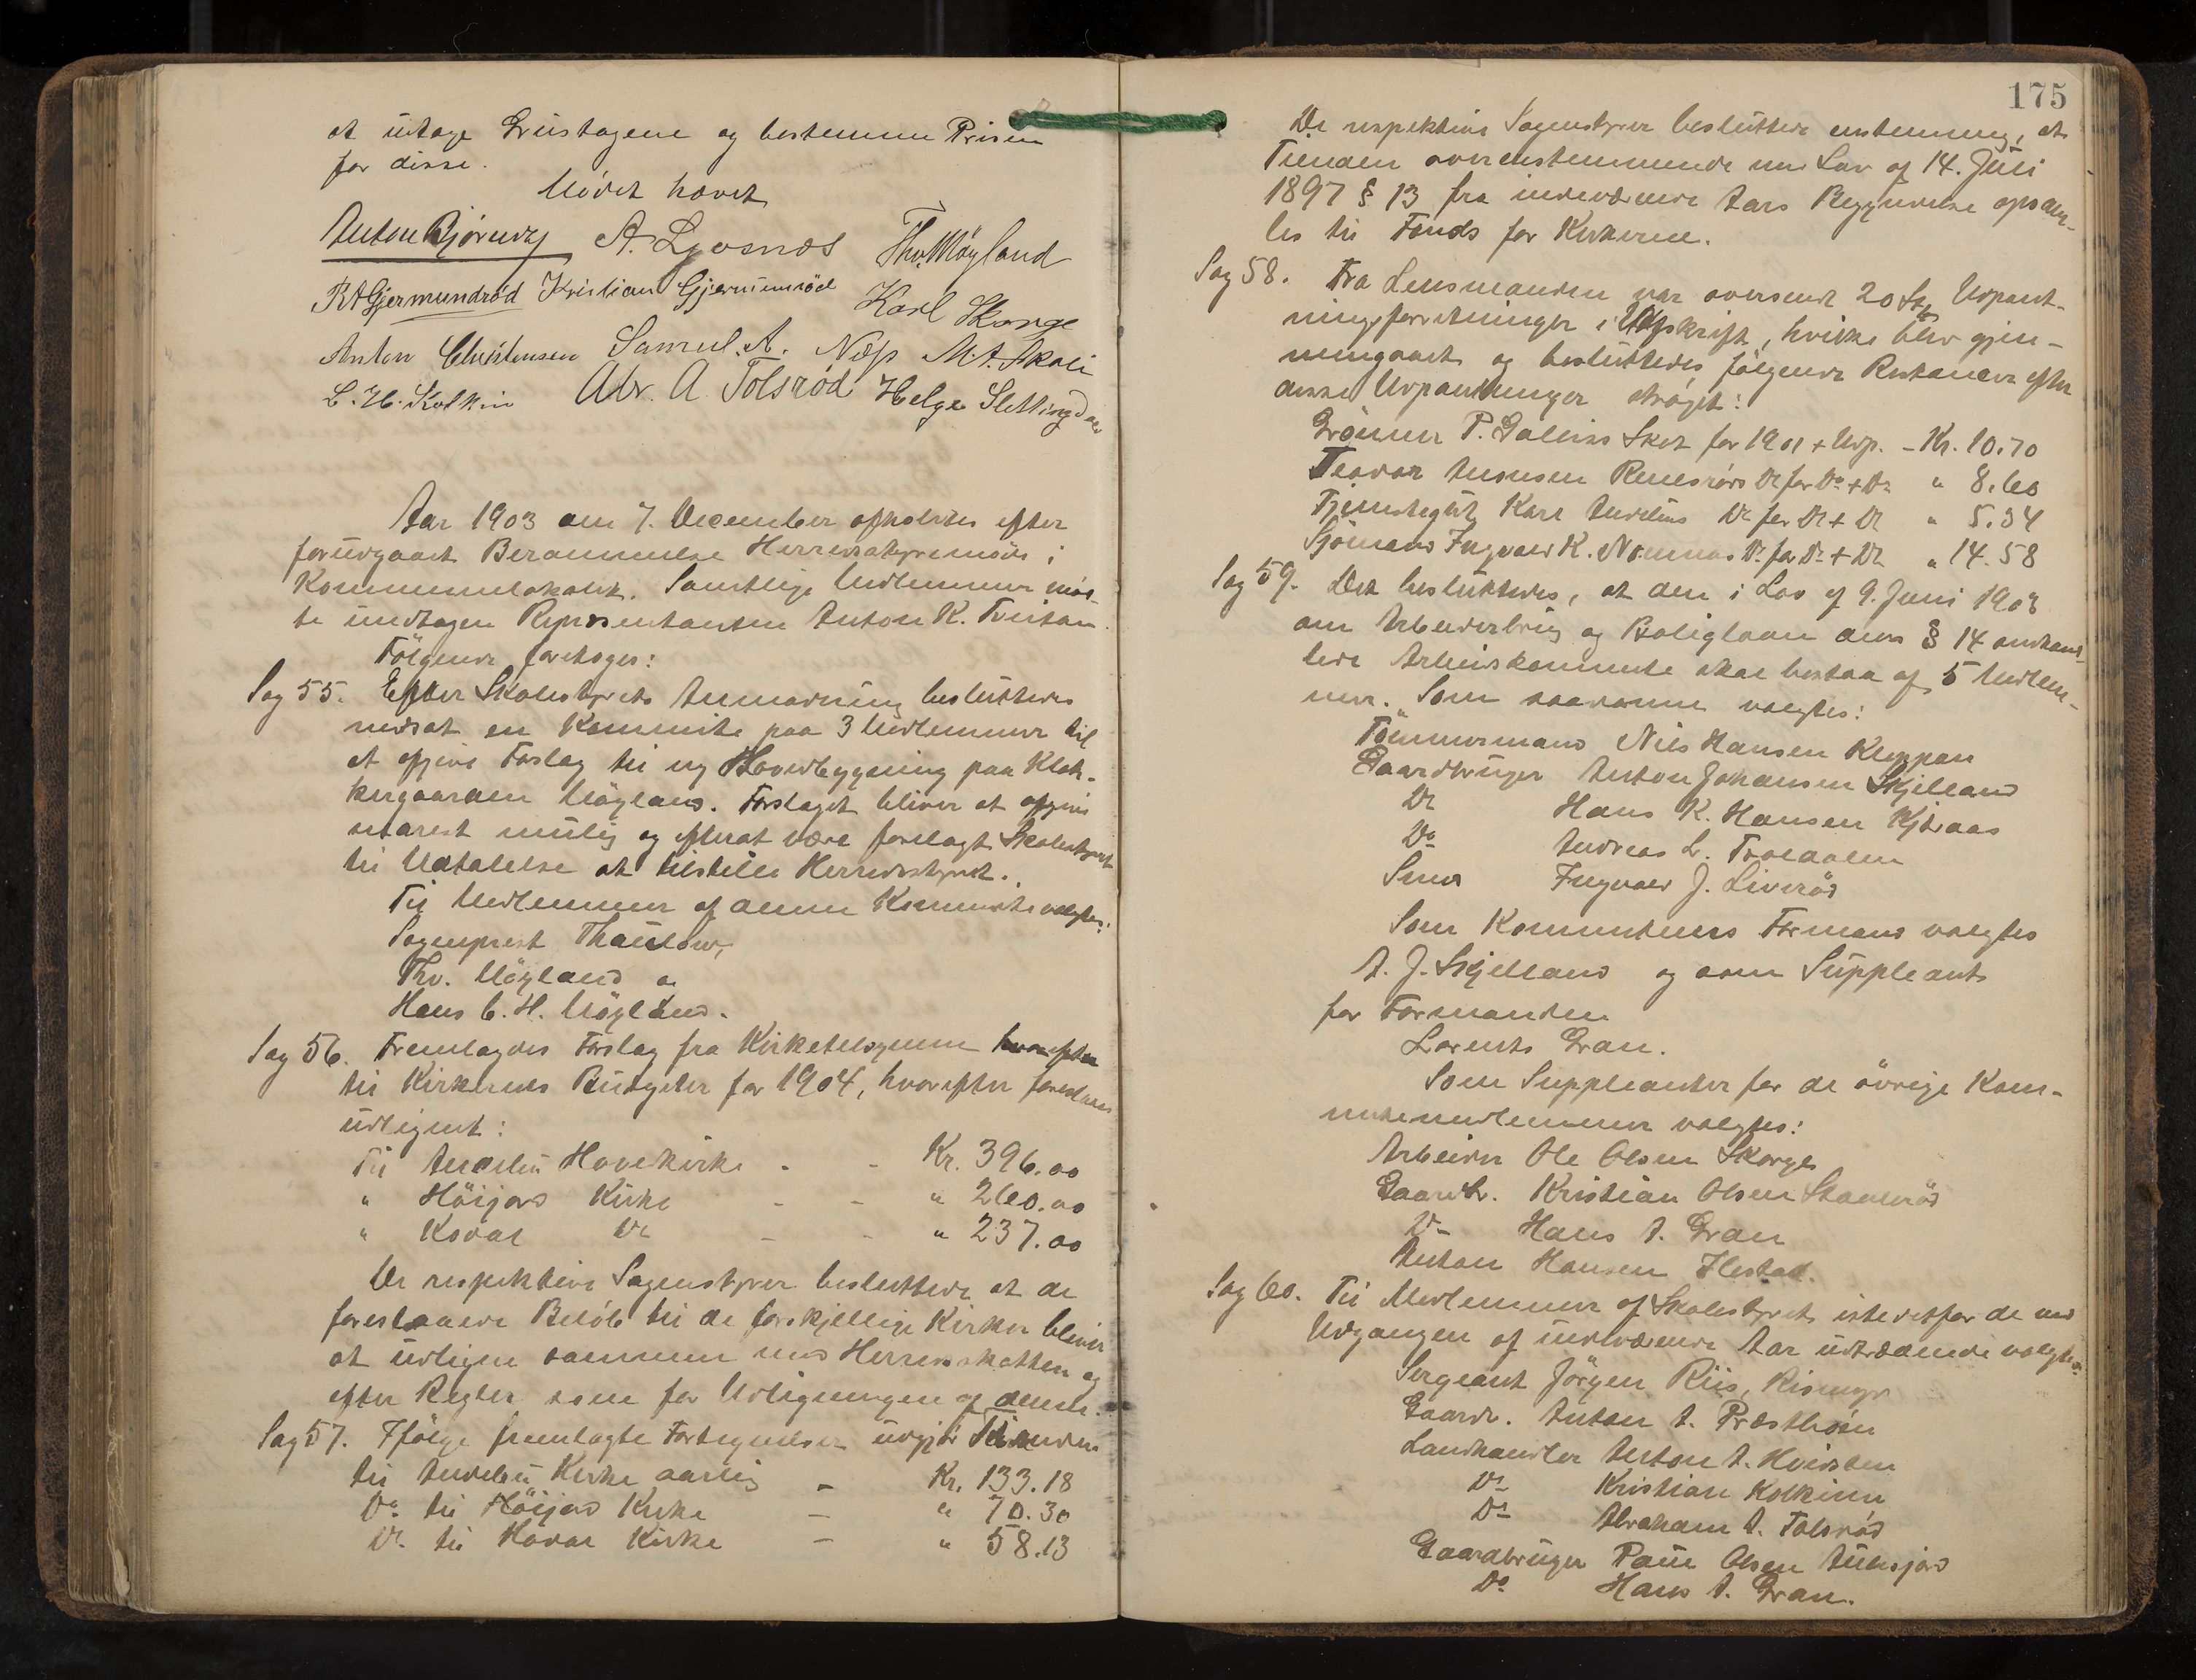 at udtage Grustagene og bestemme Prisen
for disse.
Mödet hævet
Anton Björndahl A. Lyøsnæs Thv. Möyland
R A Gjermundröd Kristian Gjermundröd Karl Skorge
Anton Christensen Samuel. A. Næss M. A. Skoli
L. H. Kolkin Abr. A Tolsröd Helge Slettingdal
Aar 1903 den 7. December afholdtes efter
forudgaaet Berammelse Herredsstyremöde i
Kommunelokalet. Samtlige Medlemmer möd-
te undtagen Repræsentanten Anton K. Tveitan.
Fölgende foretoges:
Sag 55. Efter Skolestyrets Anmodning besluttedes
nedsat en Kommite paa 3 Medlemmer til
at afgive Forslag til ny Hovedbygning paa Klok-
kergaarden Möyland. Forslaget bliver at afgive
snarest mulig og efterat være forelagt Skolestyret
til Udtalelse at tilstille Herredsstyret.
Til Medlemmer af denne Kommite valgtes:
Sogneprest Thaulow,
Thv. Möyland og
Hans C. H. Möyland.
Sag 56. Fremlagdes Forslag fra Kirketilsynene hvorefter
til Kirkernes Budgeter for 1904, hvorefter foreslaaes
udlignet:
Til Andebu Hovedkirke - - Kr. 396.00
" Höijord Kirke - - " 260.00
" Kodal Do - - " 237.00
De respektive Sognestyrer besluttede at de
forestaaende Belöb til de forskjellige Kirker bliver
at udligne sammen med Herredsskatten og
efter Regler som for Udligningen af denne.
Sag 57. Ifölge fremlagte Fortegnelser udgjör Tienden
til Andebu Kirke aarlig - Kr. 133.18
Do til Höijord Kirke - " 70.30
Do til Kodal Kirke - " 58.13
175
De respektive Sognestyrer besluttede enstemmig, at
Tienden overensstemmende med Lov af 14. Juli
1897 § 13 fra indeværende Aars Begyndelse opsam-
les til Fonds for Kirkerne.
Sag 58. Fra Lensmanden var oversendt 20 Stk. Udpant-
ningsforretninger i Udskrift, hvilke blev gjen-
nemgaaet og besluttedes fölgende Restancer efter
disse Udpantninger ströget:
P. Skat for 1901 + Udp. - Kr. 10.70
Teodor Do for Do + Do " 8.60
Tjenstegut Karl Andebu Do for Do + Do " 5.34
Sjömand Ingvald K. Do for Do + Do " 14.58
Sag 59. Det besluttedes, at den i Lov af 9. Juni 1903
om Arbeiderbrug og Boliglaan dens § 14 omhand-
lede Arbeiskommite skal bestaa af 5 Medlem-
mer. Som saadanne valgtes:
Tömmermand Nils Hansen Kleppan
Gaardbruger Anton Johansen Skjelland
Do Hans K. Hansen Kjeraas
Do Andreas L. Trolldalen
Smed Ingvald J. Liveröd
Som Kommiteens Formand valgtes
A. J. Skjelland og som Suppleant
for Formanden
Lorents Gran.
Som Suppleanter for de övrige Kom-
mitemedlemmer valgtes:
Arbeider Ole Olsen Skorge
Gaardbr. Kristian Olsen Skaukröd
Do Hans A. Gran
Anton Hansen Ilestad.
Sag 60. Til Medlemmer af Skolestyret istedetfor de ved
Udgangen af indeværende Aar udtrædende valgtes:
Sergeant Jörgen Riis, Rismyr
Gaardbr. Anton A. Præsthröen
Landhandler Anton A. Hvidsten
Do Kristian Kolkinn
Do Abraham A. Tolsröd
Gaardbruger Paul Olsen Aulesjord
Do Hans A. Gran.